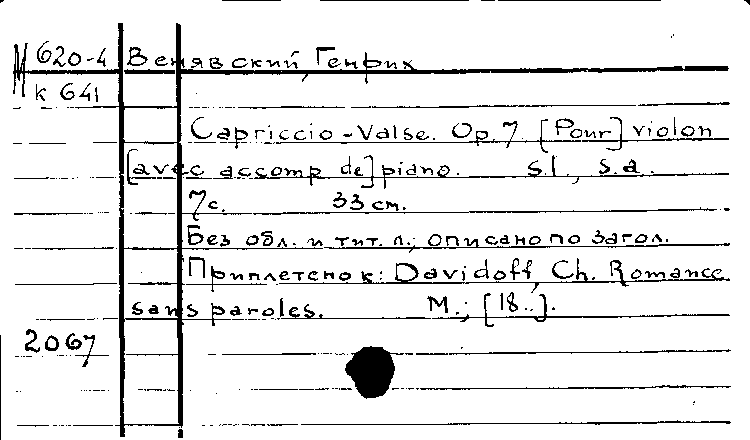 М 620-4 Венявский, Генрих
к 641
Capriccio-Valse. Op. 7. [Pour] violon
[avec accomp. de] piano. s.l., s.a.
7 с. 33 см.
Без обл. и тит. л.; описано по загол.
Приплетено к: Davidoff, Ch. Romance
sans paroles. М.; [18..].
2067